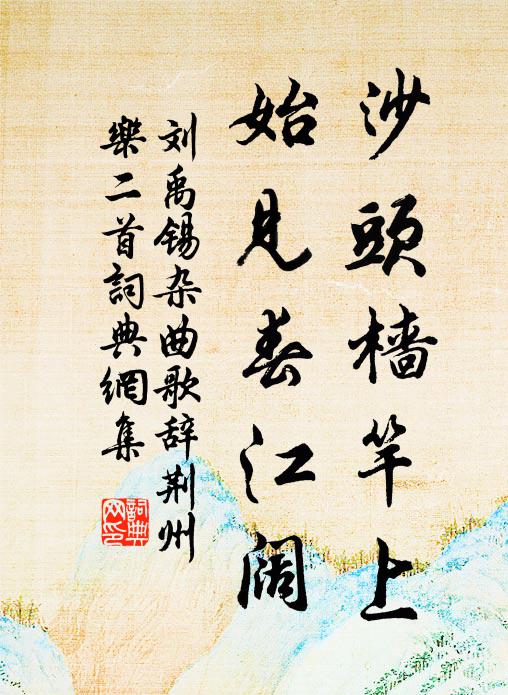 沙頭檣竿上
始見春江阔
刘禹锡杂曲歌辞荆州
樂二首詞典網集
詞典
网印